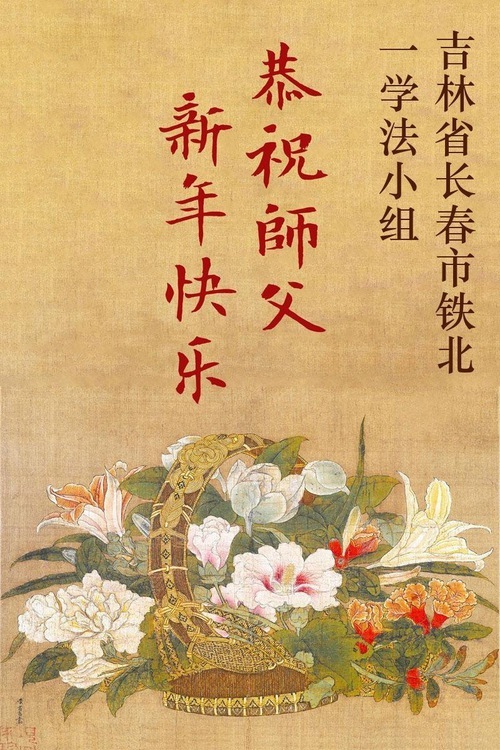 吉林省长春市铁北
一学法小组
恭祝師父
新年快乐